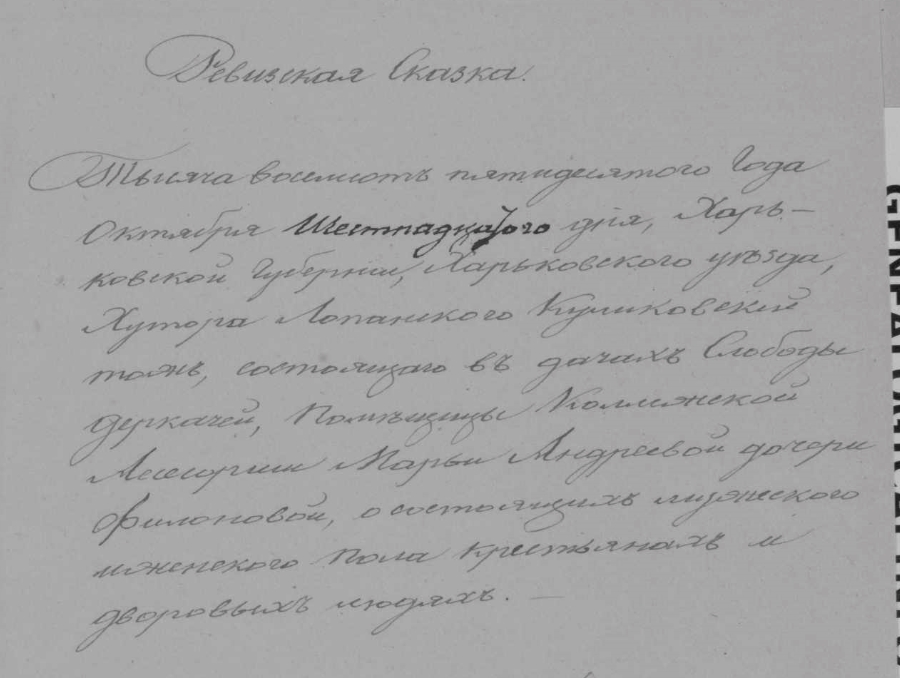 Ревизская Сказка.
Тысяча восемсотъ пятидесятого Года
Октября Шестнадцатого дня, Харь-
ковской Губернии, Харьковского уѣзда,
Хутора Лопанского Куликовский
тожъ, состоящаго въ дачахъ Слободы
Деркачей, Помѣщицы Коллежской
Асесорши Марьи Андреевой дочери
Филоновой, о состоящихъ мужеского
и женского пола крестьянахъ и
дворовыхъ людяхъ. —